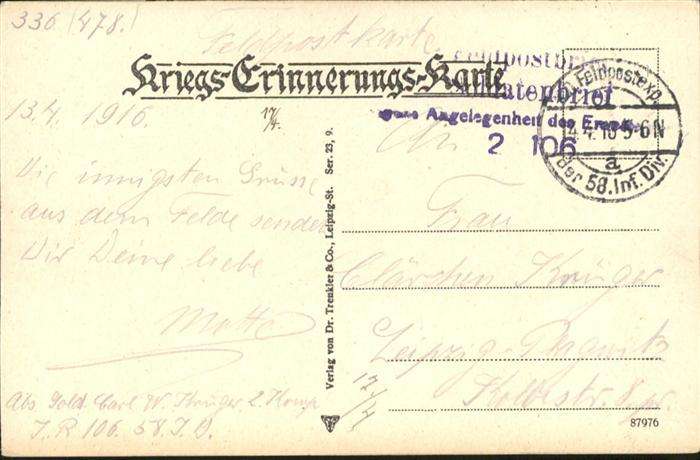 336 (478.)
Feldpostkarte
Kriegs-Erinnerungs-Karte
Soldatenbrief
eigene Angelegenheit des Empf.
2 106
Feldpostexp.
4.16 5-6 N
a
der 58. Inf. Div.
13.4.1916.
17/4.
Die innigsten Grüsse
aus dem Felde sendet
Dir Deine liebe
Abs. Sold. Carl W. Krüger 2. Komp
I.R 106. 58. I.D.
Verlag von Dr. Trenkler & Co., Leipzig-St. Ser. 23, 9.
An
Frau
Clärchen Krüger
Leipzig-Plagwitz
17/4
87976